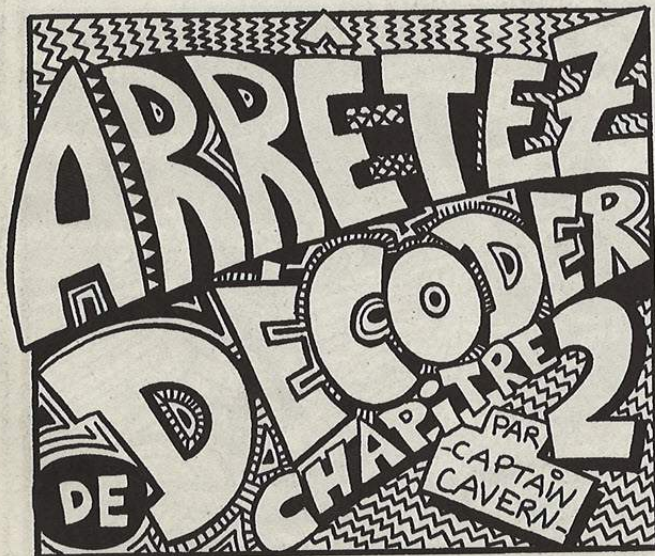 ARRÊTEZ
DE DECODER
CHAPiTRE 2
PAR
-CAPTAIN
CAVERN-